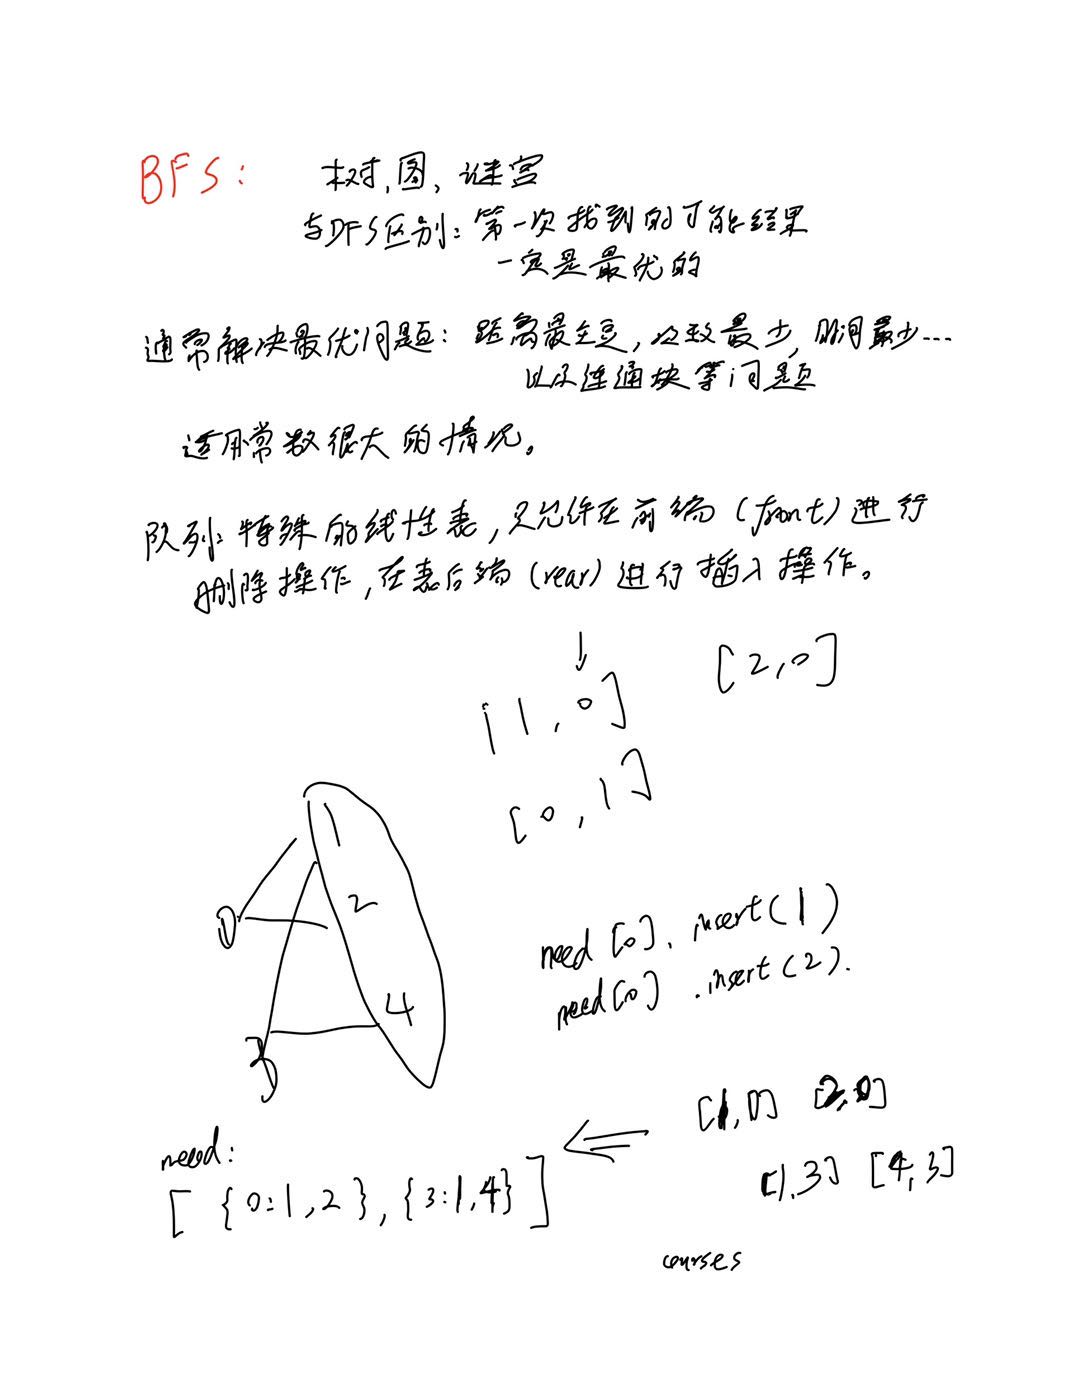 BFS: 树,图,谜宫
与DFS区别:第一次找到的可能结果
一定是最优的
通常解决最优问题:距离最短,次数最少,时间最少...
以及连通块等问题
适用常数很大的情况。
队列:特殊的线性表,只允许在前端(front)进行
删除操作,在表后端(rear)进行插入操作。
[2,0]
[1,0]
[0,1]
1
0
2
need[0].insert(1)
need[0].insert(2).
4
3
[1,0] [2,0]
need:
[1,3] [4,3]
[{0:1,2},{3:1,4}]
courses